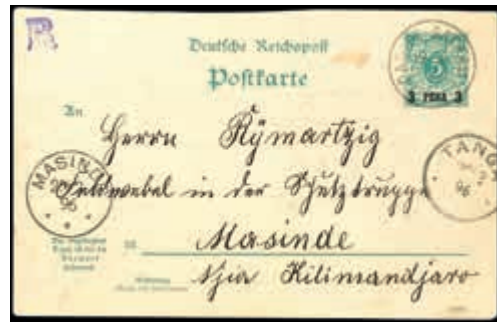 R
Deutsche Reichspost
Postkarte
5
3 PESA 3
An
Herrn Rymartzig
MASINDE
Feldwebel in der Schutztruppe
TANGA
96
in Masinde
via Kilimandjaro
Wohnung